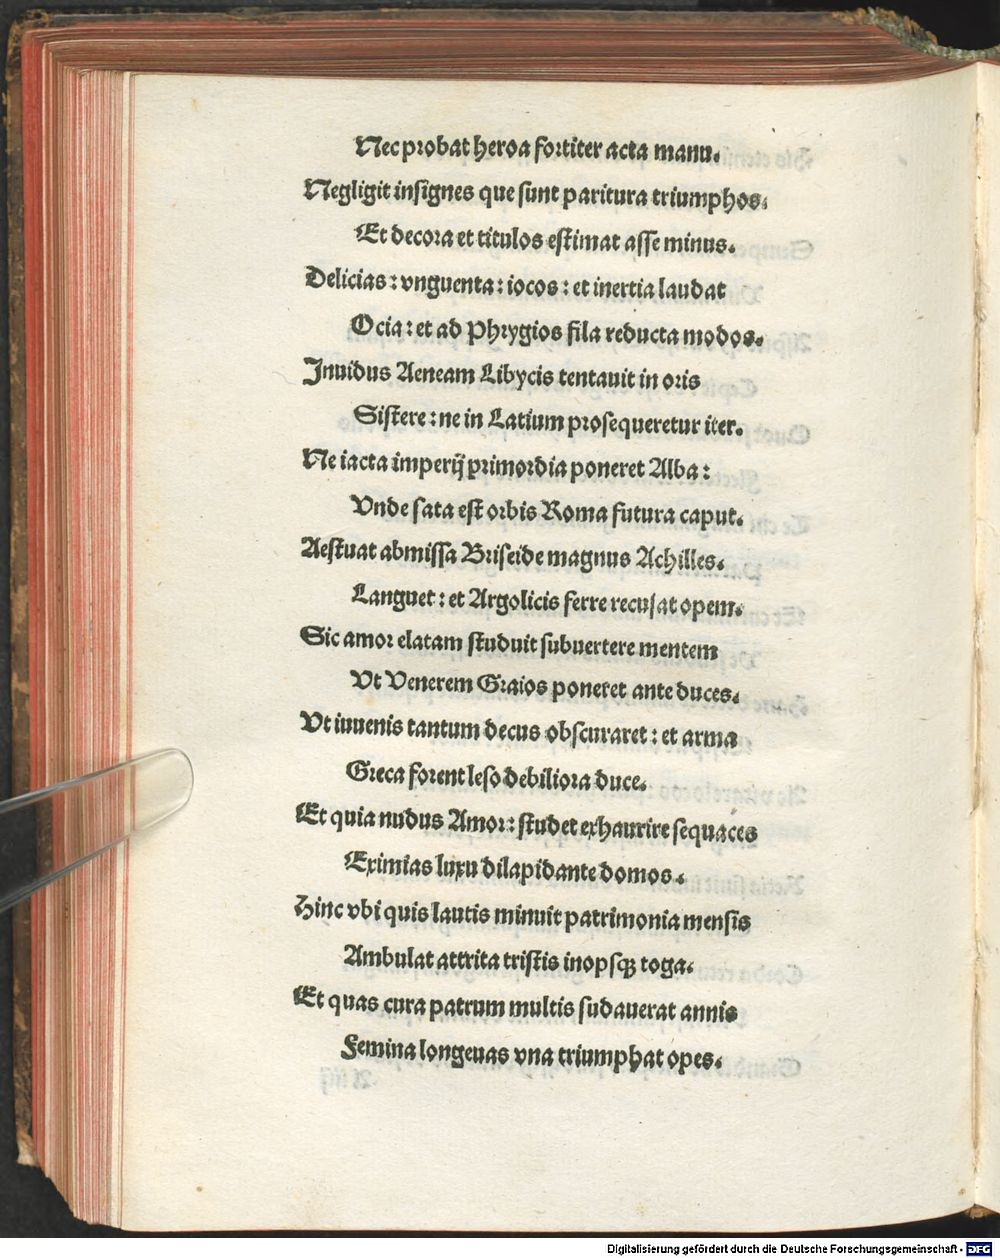 Nec probat heroa fortiter acta manu.
Negligit insignes que sunt paritura triumphos.
Et decora et titulos estimat asse minus.
Delicias: vnguenta: iocos: et inertia laudat
Ocia: et ad Phrygios fila reducta modos.
Inuidus Aeneam Libycis tentauit in oris
Sistere: ne in Latium prosequeretur iter.
Ne iacta imperij primordia poneret Alba:
Vnde sata est orbis Roma futura caput.
Aestuat abmissa Briseide magnus Achilles.
Languet: et Argolicis ferre recusat opem.
Sic amor elatam studuit subuertere mentem
Vt Venerem Graios poneret ante duces.
Vt iuuenis tantum decus obscuraret: et arma
Greca forent leso debiliora duce.
Et quia nudus Amor: studet exhaurire sequaces
Eximias luxu dilapidante domos.
Hinc vbi quis lautis minuit patrimonia mensis
Ambulat attrita tristis inopsqꝫ toga.
Et quas cura patrum multis sudauerat annis
Femina longeuas vna triumphat opes.
Digitalisierung gefördert durch die Deutsche Forschungsgemeinschaft - DFG